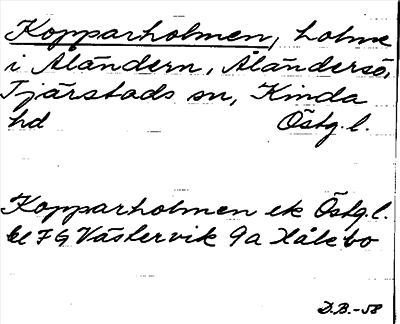 Kopparholmen, holme
i Åländern, Åländersö,
Tjärstads sn, Kinda
hd Östg. l.
Kopparholmen ek Östg. l.
bl 7G Västervik 9a Hålebo
D.B.-58